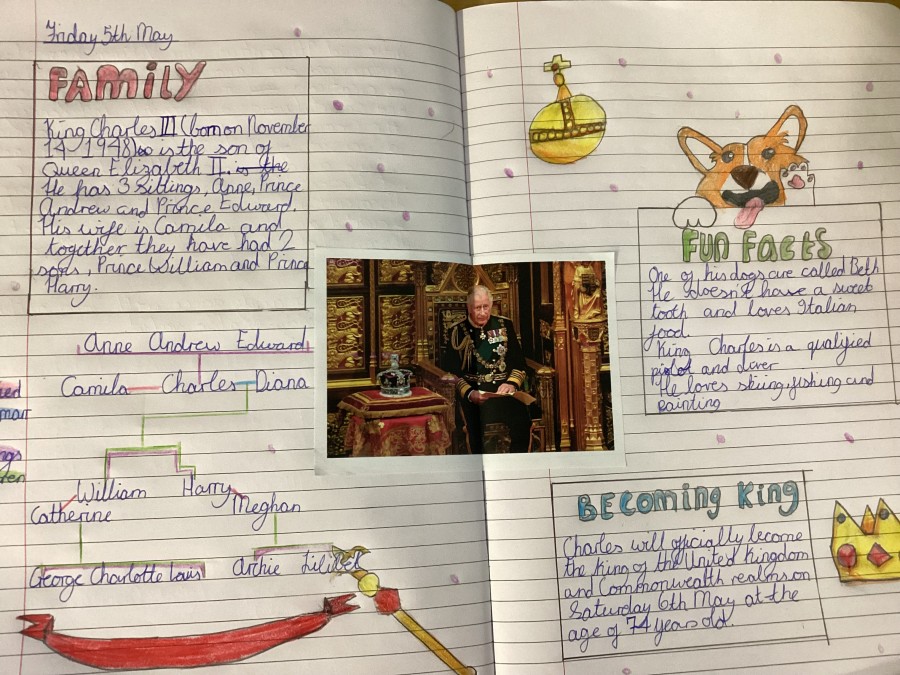 Friday 5th May
FAMILY
King Charles III (born on November
14 1948) is the son of
Queen Elizabeth II. is the
He has 3 siblings, Anne, Prince
Andrew and Prince Edward.
His wife is Camila and
together they have had 2
sons, Prince William and Prince
Harry.
Anne Andrew Edward
Camila Charles Diana
William Harry
Catherine Meghan
George Charlotte Louis Archie Lilibet
FUN FACTS
One of his dogs are called Beth
He doesn't have a sweet
tooth and loves Italian
food.
King Charles is a qualified
pilot and diver
He loves skiing, fishing and
painting
BECOMING KING
Charles will officially become
the King of the United Kingdom
and Commonwealth realms on
Saturday 6th May at the
age of 74 years old.